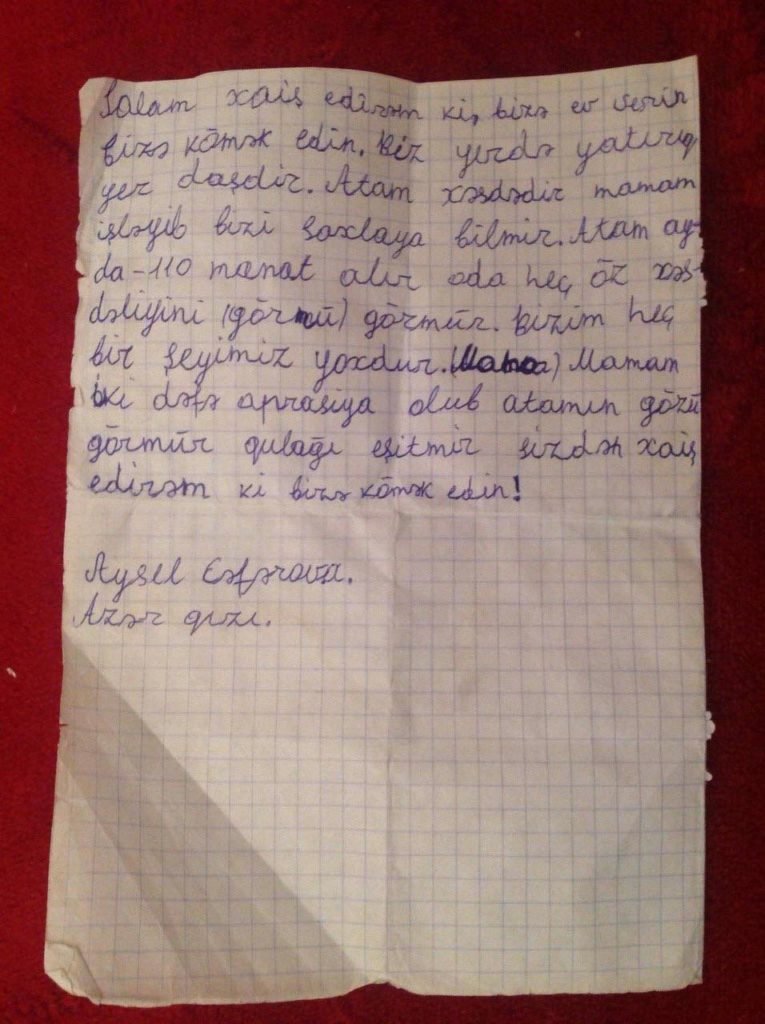 Salam xaiş edirəm ki, bizə ev verin
bizə kömək edin. Biz yerdə yatırıq
yer daşdir. Atam xəsdədir mamam
işləyib bizi saxlaya bilmir. Atam ay-
da-110 manat alır oda heç öz xəs-
dəliyini (görmü) görmür. Bizim heç
bir şeyimiz yoxdur. Mamam
iki dəfə aprasiya olub atamın gözü
görmür qulağı eşitmir sizdən xaiş
edirəm ki bizə kömək edin!
Aysel Cəfərova.
Azər qızı.